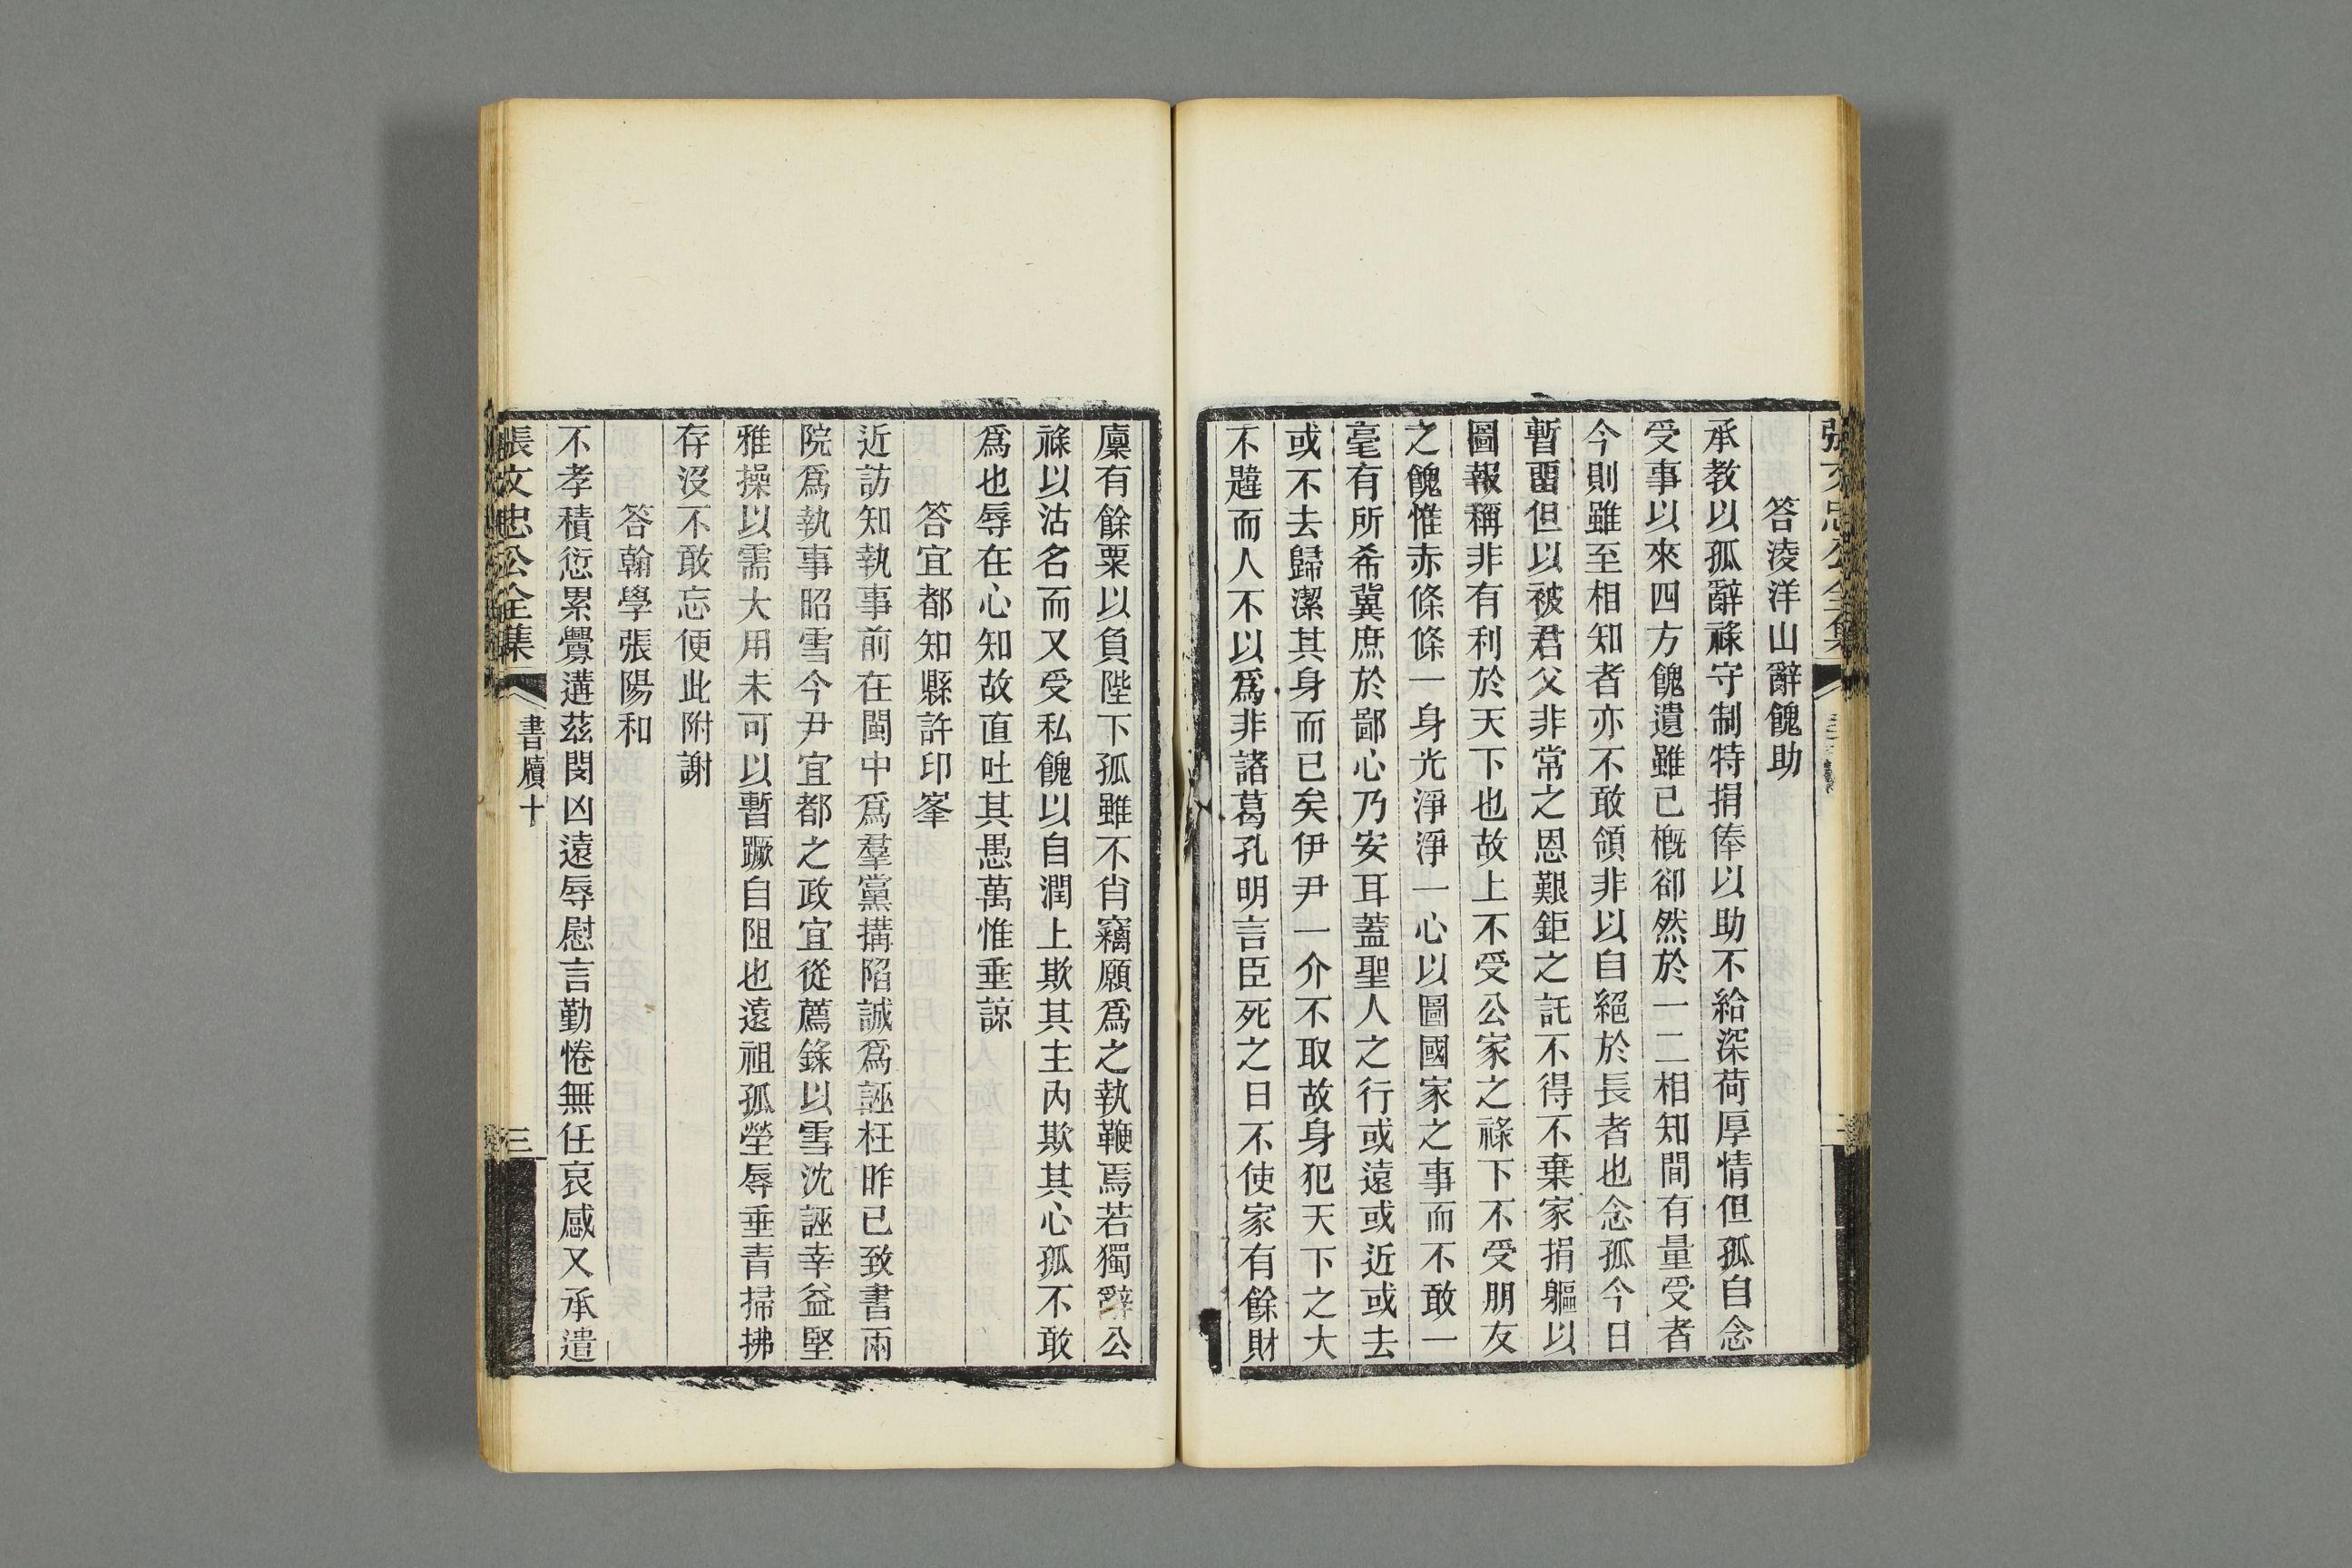 答淩洋山辭餽助
承教以孤辭祿守制特捐俸以助不給深荷厚情但孤自念
受事以來四方餽遺雖已概卻然於一二相知間有量受者
今則雖至相知者亦不敢領非以自絕於長者也念孤今日
暫畱但以被君父非常之恩艱鉅之託不得不棄家捐軀以
圖報稱非有利於天下也故上不受公家之祿下不受朋友
之餽惟赤條條一身光淨淨一心以圖國家之事而不敢一
毫有所希冀庶於鄙心乃安耳蓋聖人之行或遠或近或去
或不去歸潔其身而已矣伊尹一介不取故身犯天下之大
不韙而人不以爲非諸葛孔明言臣死之日不使家有餘財
廩有餘粟以負陛下孤雖不肖竊願爲之執鞭焉若獨辭公
祿以沽名而又受私餽以自潤上欺其主內欺其心孤不敢
爲也辱在心知故直吐其愚萬惟垂諒
答宜都知縣許印峯
近訪知執事前在閩中爲羣黨搆陷誠爲誣枉昨已致書兩
院爲執事昭雪今尹宜都之政宜從薦錄以雪沈誣幸益堅
雅操以需大用未可以暫蹶自阻也遠祖孤塋辱垂青掃拂
存沒不敢忘便此附謝
答翰學張陽和
不孝積愆累釁遘茲閔凶遠辱慰言勤惓無任哀感又承遣
張文忠公全集 書牘十 三